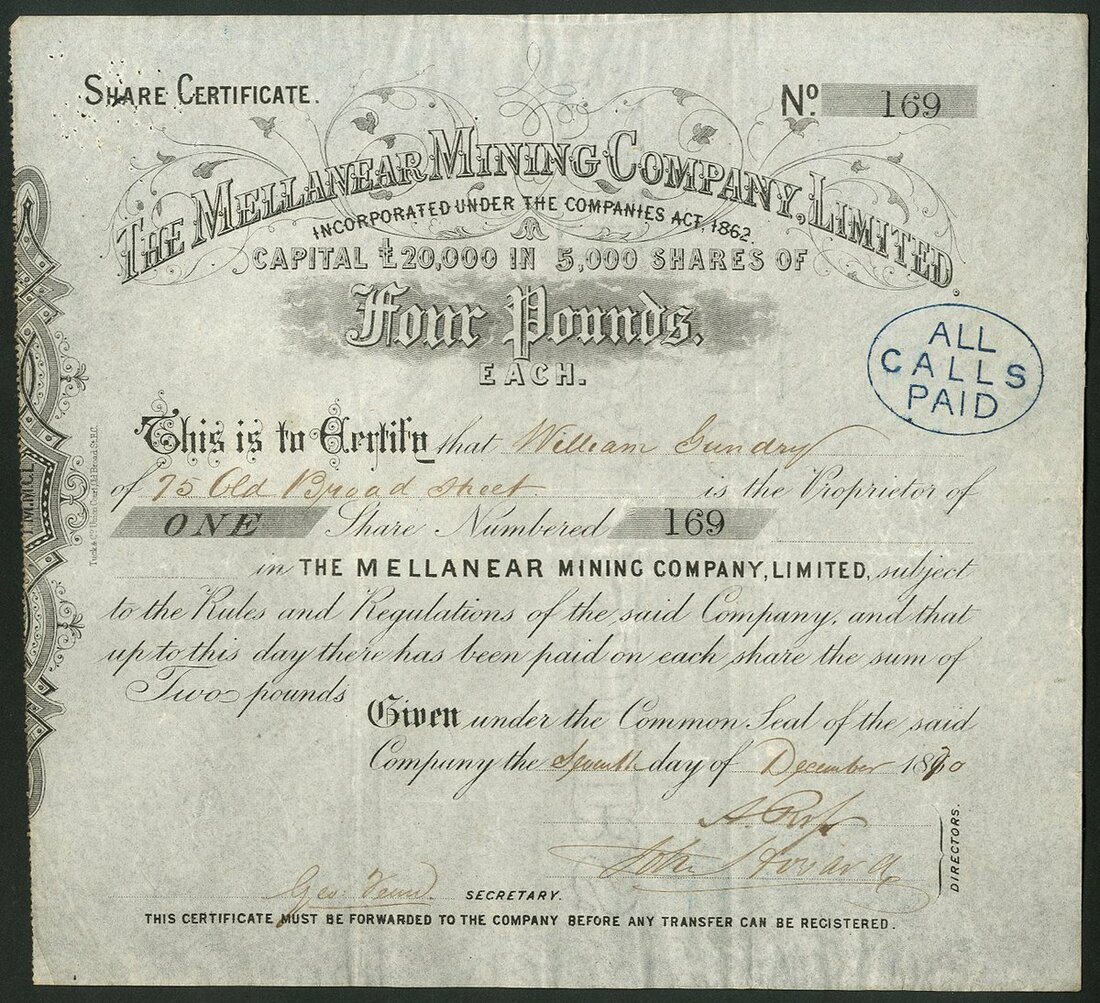 SHARE CERTIFICATE.
No. 169
THE MELLANEAR MINING COMPANY, LIMITED.
INCORPORATED UNDER THE COMPANIES ACT, 1862.
CAPITAL £20,000 IN 5,000 SHARES OF
Four Pounds,
EACH.
ALL
CALLS
PAID
This is to Certify that William Gundry
of 75 Old Broad Street is the Proprietor of
ONE Share Numbered 169
in THE MELLANEAR MINING COMPANY, LIMITED, subject
to the Rules and Regulations of the said Company, and that
up to this day there has been paid on each share the sum of
Two pounds
Given under the Common Seal of the said
Company the Seventh day of December 1870
John Howard
DIRECTORS.
Geo: SECRETARY.
THIS CERTIFICATE MUST BE FORWARDED TO THE COMPANY BEFORE ANY TRANSFER CAN BE REGISTERED.